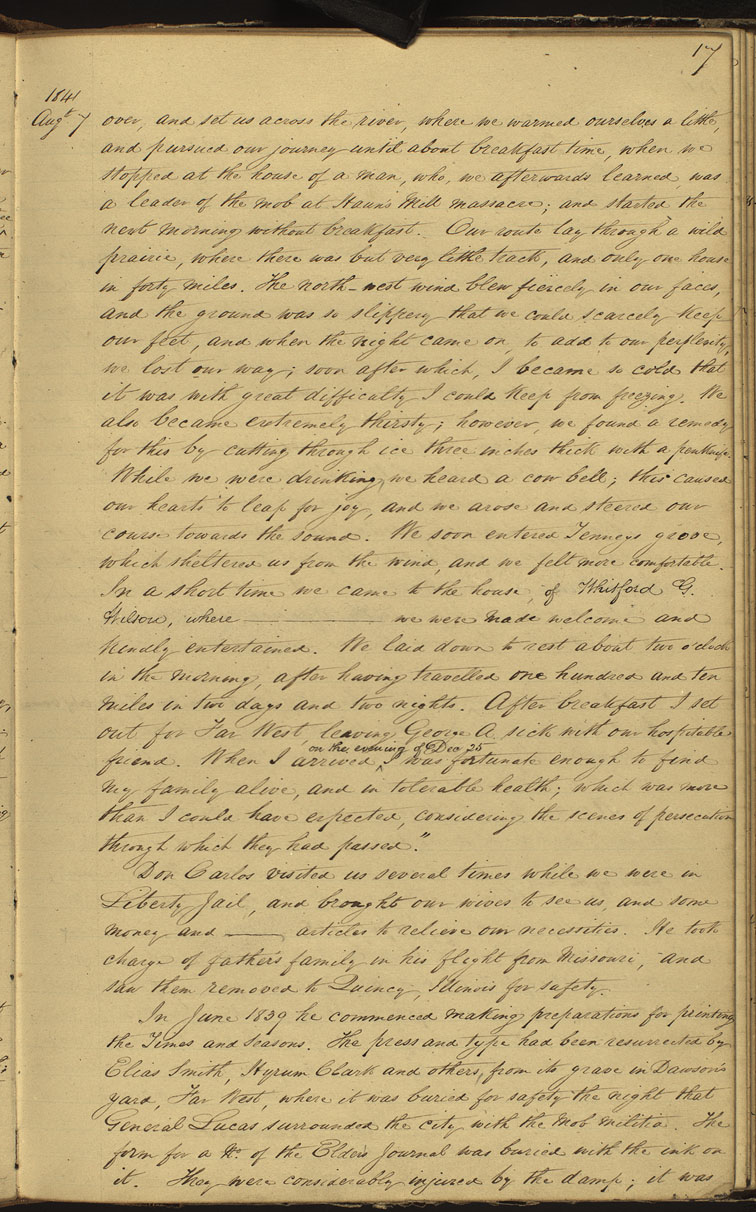 17
1841
Augt 7 over, and set us across the river, where we warmed ourselves a little,
and pursued our journey until about breakfast time, when we
stopped at the house of a man, who, we afterwards learned, was
a leader of the mob at Haun's Mill massacre; and started the
next morning without breakfast. Our route lay through a wild
prairie, where there was but very little track, and only one house
in forty miles. The north-west wind blew fiercely in our faces,
and the ground was so slippery that we could scarcely keep
our feet, and when the night came on, to add to our perplexity,
we lost our way; soon after which, I became so cold that
it was with great difficulty I could keep from freezing. We
also became extremely thirsty; however, we found a remedy
for this by cutting through ice three inches thick with a penknife.
While we were drinking, we heard a cow bell; this caused
our hearts to leap for joy, and we arose and steered our
course towards the sound. We soon entered Tenneys grove,
which sheltered us from the wind, and we felt more comfortable.
In a short time we came to the house, of Whitford G.
Wilson, where ——— we were made welcome and
kindly entertained. We laid down to rest about two o'clock
in the morning, after having travelled one hundred and ten
miles in two days and two nights. After breakfast I set
out for Far West, leaving George A. sick with our hospitable
on the evening of Dec 25
friend. When I arrived, ^ I was fortunate enough to find
my family alive, and in tolerable health; which was more
than I could have expected, considering the scenes of persecution
through which they had passed."
Don Carlos visited us several times while we were in
Liberty Jail, and brought our wives to see us, and some
money and —— articles to relieve our necessities. He took
charge of father's family in his flight from Missouri, and
saw them removed to Quincy, Illinois for safety.
In June 1839 he commenced making preparations for printing
the Times and Seasons. The press and type had been resurrected by
Elias Smith, Hyrum Clark and others, from its grave in Dawson's
yard, Far West, where it was buried for safety the night that
General Lucas surrounded the city with the mob militia. The
form for a No. of the Elders Journal was buried with the ink on
it. They were considerably injured by the damp; it was